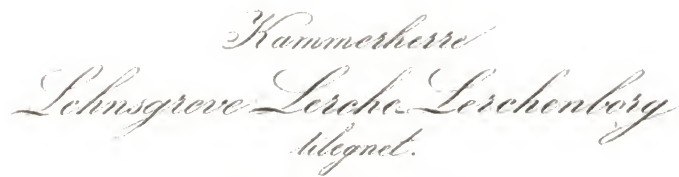 Kammerherre
Lehnsgreve Lerche Lerchenborg
tilegnet.